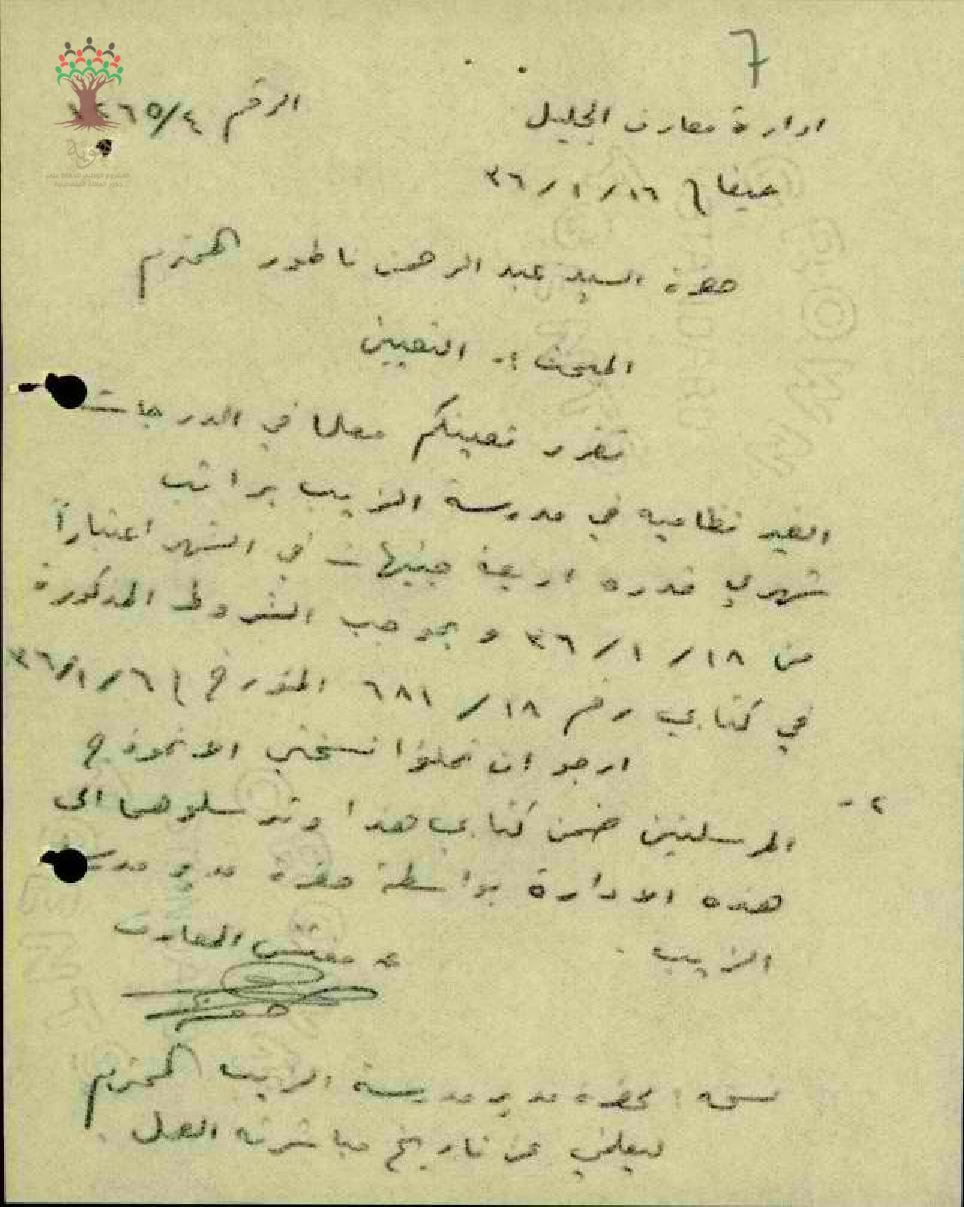 7
ادارة معارف الجليل
الرقم ٤/١٤٦٥
حيفا ١٦/١/٣٦
هوية
حضرة السيد عبد الرحمن ناطور المحترم
المبحث :- التعيين
تقرر تعيينكم معلما في الدرجات
الغير نظامية في مدرسة الزيب براتب
شهري قدره اربعة جنيهات في الشهر اعتباراً
من ١٨/١/٣٦ و بموجب الشروط المذكورة
في كتابي رقم ١٨/٦٨١ المؤرخ ٦/١/٣٦
٢- ارجو ان تملؤا نسختي الانموذج
المرسلتين ضمن كتابي هذا وترسلوهما الى
هذه الادارة بواسطة حضرة مدير مدرسة
الزيب .
عـ مفتش المعارف
نسخه : لحضرة مدير مدرسة الزيب المحترم
ليعلمني عن تاريخ مباشرته العمل .